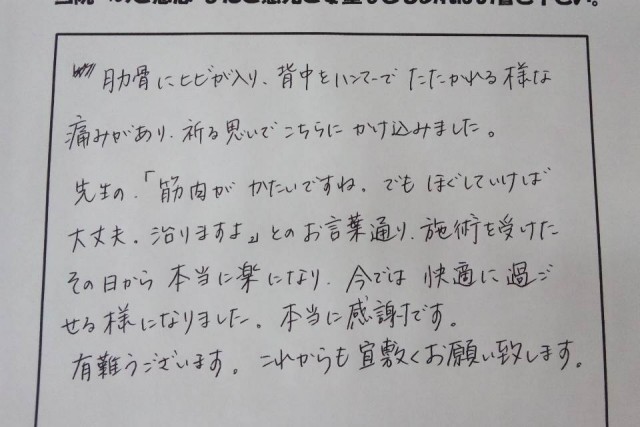 肋骨にヒビが入り、背中をハンマーでたたかれる様な
痛みがあり、祈る思いでこちらにかけ込みました。
先生の、「筋肉がかたいですね。でもほぐしていけば
大丈夫。治りますよ」とのお言葉通り、施術を受けた
その日から本当に楽になり、今では快適に過ご
せる様になりました。本当に感謝です。
有難うございます。これからも宜敷くお願い致します。